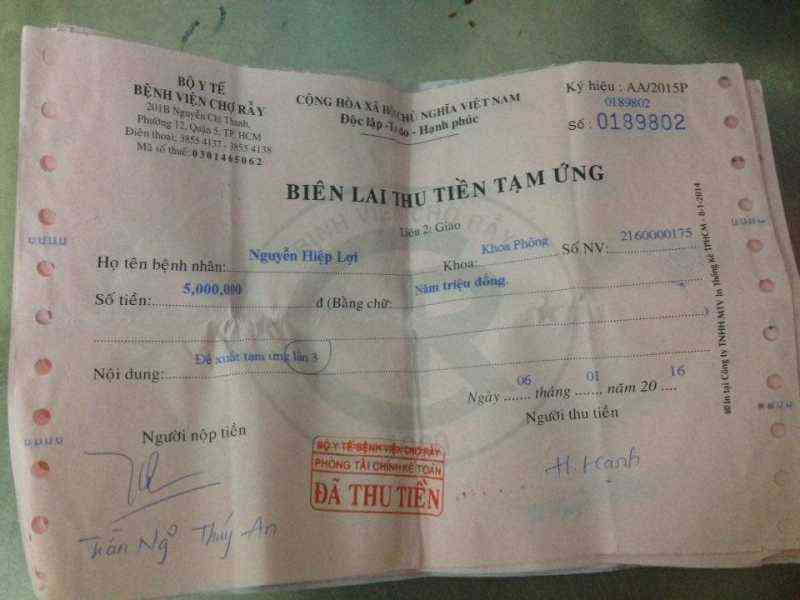 BỘ Y TẾ
BỆNH VIỆN CHỢ RẪY
201B Nguyễn Chí Thanh,
Phường 12, Quận 5, TP. HCM
Điện thoại: 3855 4137 - 3855 4138
Mã số thuế: 0301465062
CỘNG HÒA XÃ HỘI CHỦ NGHĨA VIỆT NAM
Độc lập - Tự do - Hạnh phúc
Ký hiệu : AA/2015P
0189802
Số : 0189802
BIÊN LAI THU TIỀN TẠM ỨNG
Liên 2: Giao
Họ tên bệnh nhân: Nguyễn Hiệp Lợi Khoa: Khoa Phỏng Số NV: 2160000175
Số tiền: 5,000,000 đ (Bằng chữ: Năm triệu đồng.
)
Nội dung: Đề xuất tạm ứng lần 3
Ngày 06 tháng 01 năm 20 16
Người nộp tiền
Người thu tiền
BỘ Y TẾ-BỆNH VIỆN CHỢ RẪY
PHÒNG TÀI CHÍNH KẾ TOÁN
ĐÃ THU TIỀN
H. Hạnh
Trần Ngô Thúy An
In tại Công ty TNHH MTV In Thống Kê TPHCM - 8-1-2014
BỆNH VIỆN CHỢ RẪY